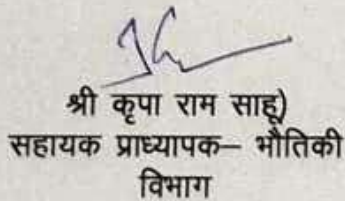 श्री कृपा राम साहू)
सहायक प्राध्यापक– भौतिकी
विभाग